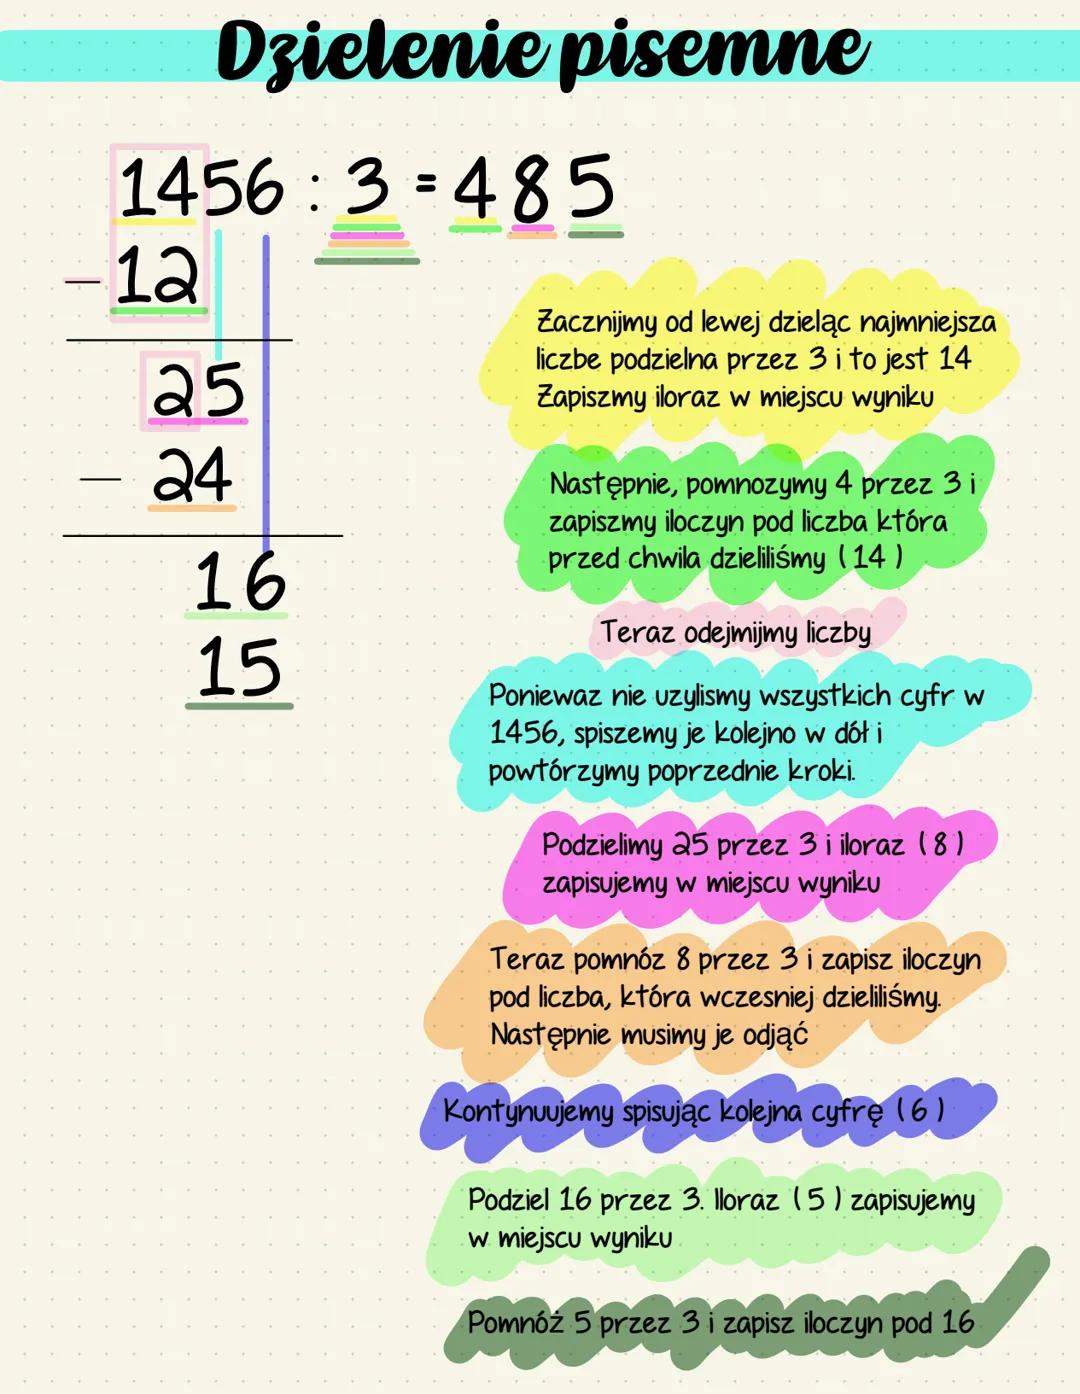 Dzielenie pisemne
1456 : 3 = 485
- 12
25
- 24
16
15
Zacznijmy od lewej dzieląc najmniejsza
liczbe podzielna przez 3 i to jest 14
Zapiszmy iloraz w miejscu wyniku
Następnie, pomnozymy 4 przez 3 i
zapiszmy iloczyn pod liczba która
przed chwila dzieliliśmy (14)
Teraz odejmijmy liczby
Poniewaz nie uzylismy wszystkich cyfr w
1456, spiszemy je kolejno w dół i
powtórzymy poprzednie kroki.
Podzielimy 25 przez 3 i iloraz (8)
zapisujemy w miejscu wyniku
Teraz pomnóz 8 przez 3 i zapisz iloczyn
pod liczba, która wczesniej dzieliliśmy.
Następnie musimy je odjąć
Kontynuujemy spisując kolejna cyfrę (6)
Podziel 16 przez 3. Iloraz (5) zapisujemy
w miejscu wyniku
Pomnóż 5 przez 3 i zapisz iloczyn pod 16